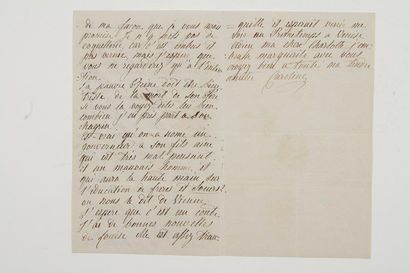 de ma façon que je vous avais
promise. Je n'y mets pas de
coquetterie, car c'est on ne peut
plus, mais j'espère que
vous ne regarderez qu'à l'inten
tion.
La pauvre Reine doit être bien
triste de la mort de son
si vous la voyez dites lui bien
combien j'ai pris part à son
chagrin.
Est-ce vrai qu'on a nommé un
gouverneur à son fils aîné
qui est très mal pensant
et un mauvais homme, et
qui aura la haute main sur
l'éducation de frères et sœurs!
on nous le dit de Vienne
J'espère que c'est un conte.
J'ai de bonnes nouvelles
de Louise elle est assez tran-
quille et espérait venir me
voir au Printemps à Venise
Adieu ma chère Charlotte j'em
brasse Marguerite avec vous
croyez bien à toute ma tendre
amitié
Caroline